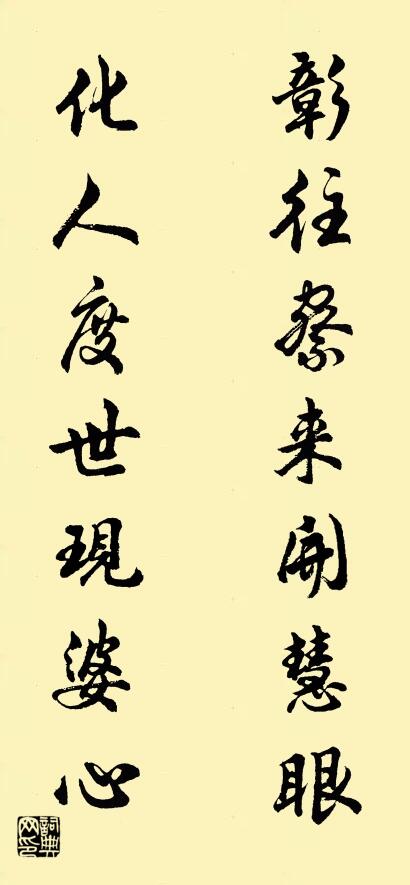 彰往察来開慧眼
化人度世現婆心
詞典网印